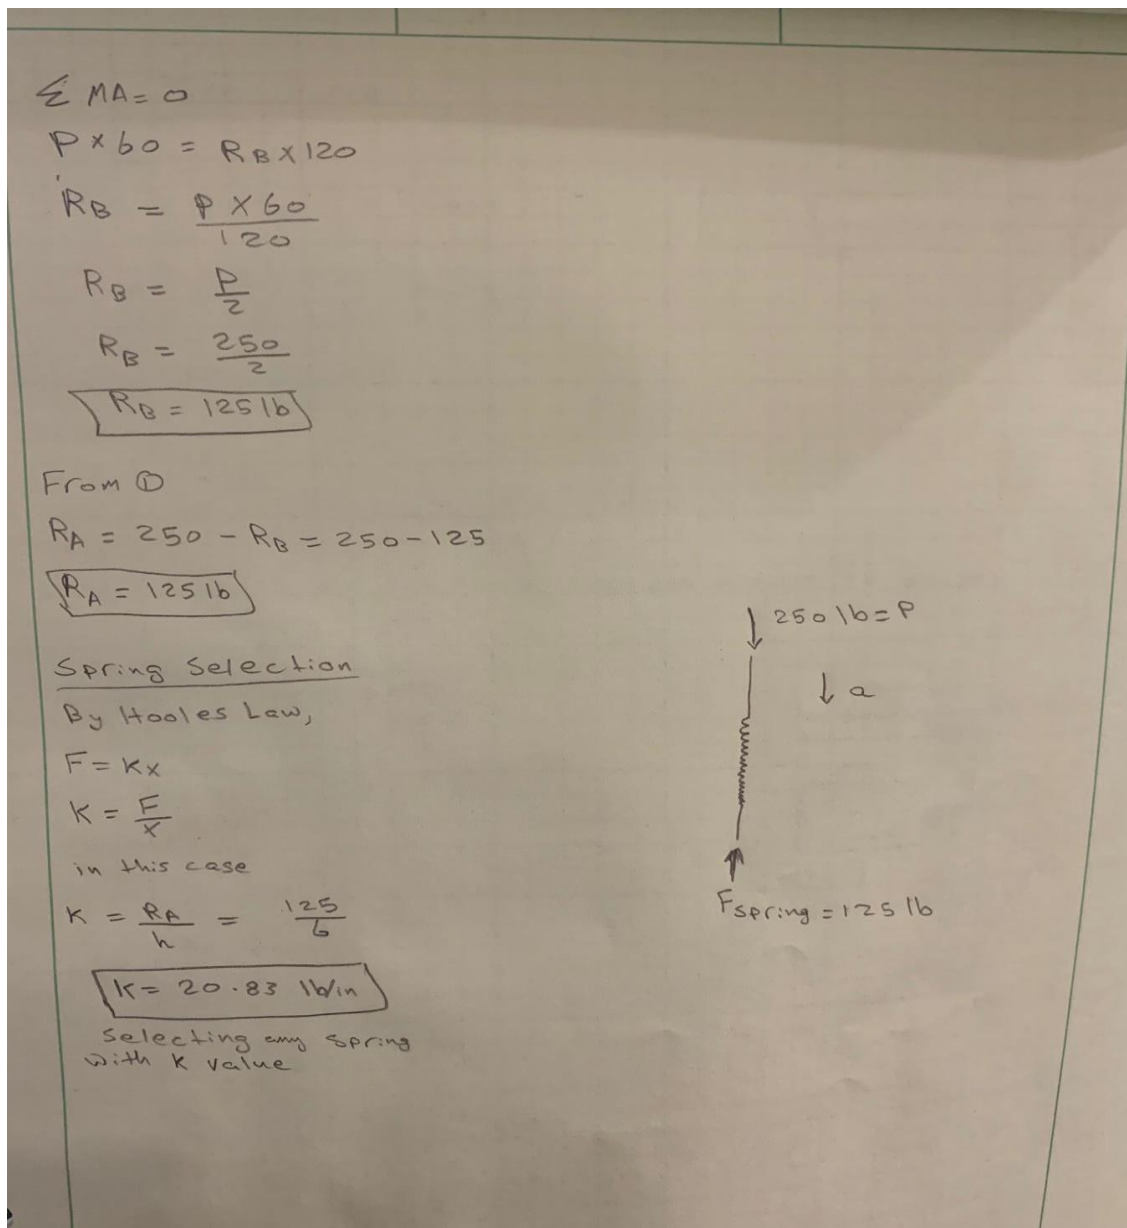 Σ MA = 0
P × 60 = RB × 120
RB = P × 60 / 120
RB = P / 2
RB = 250 / 2
RB = 125 lb
From ①
RA = 250 - RB = 250 - 125
RA = 125 lb
Spring Selection
By Hooles Law,
F = Kx
K = F / x
in this case
K = RA / h = 125 / 6
K = 20.83 lb/in
Selecting any spring
with K value
250 lb = P
a
Fspring = 125 lb